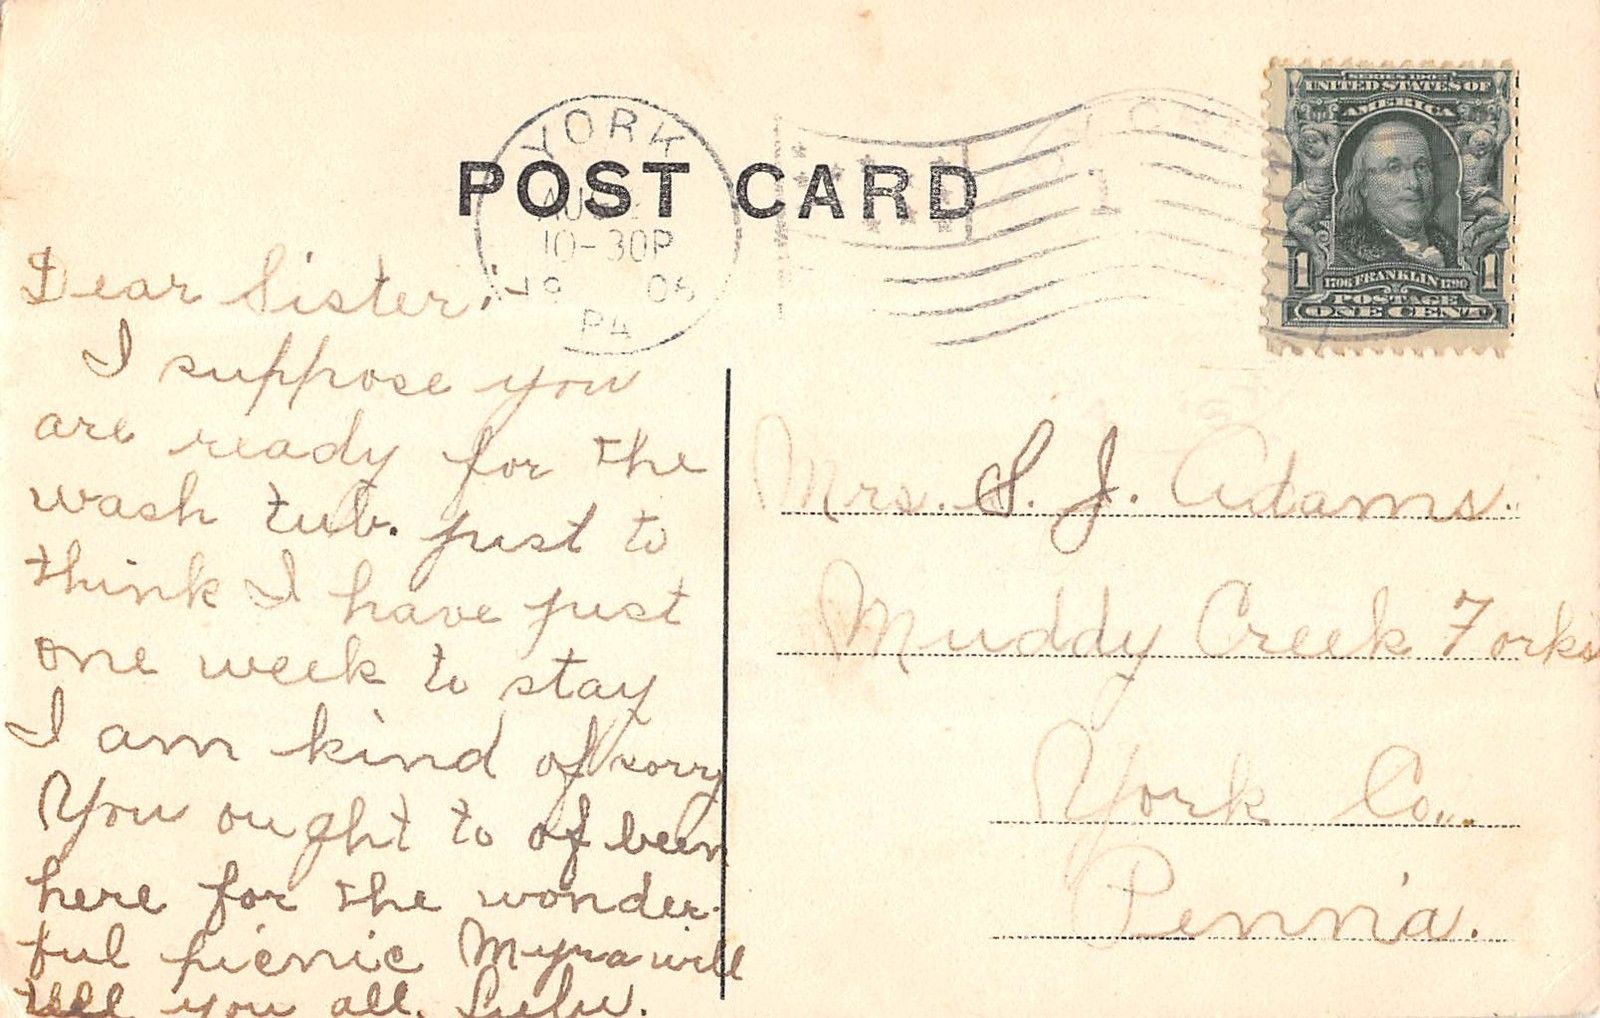 POST CARD
YORK
10-30P
PA
SERIES 1902
UNITED STATES OF
AMERICA
1706 FRANKLIN 1790
1 1
POSTAGE
ONE CENT
Dear Sister:-
I suppose you
are ready for the
wash tub. just to
think I have just
one week to stay
I am kind of sorry
You ought to of been
here for the wonder-
ful picnic Myra will
tell you all. Lulu.
Mrs. S. J. Adams.
Muddy Creek Forks
York Co.,
Penn'a.